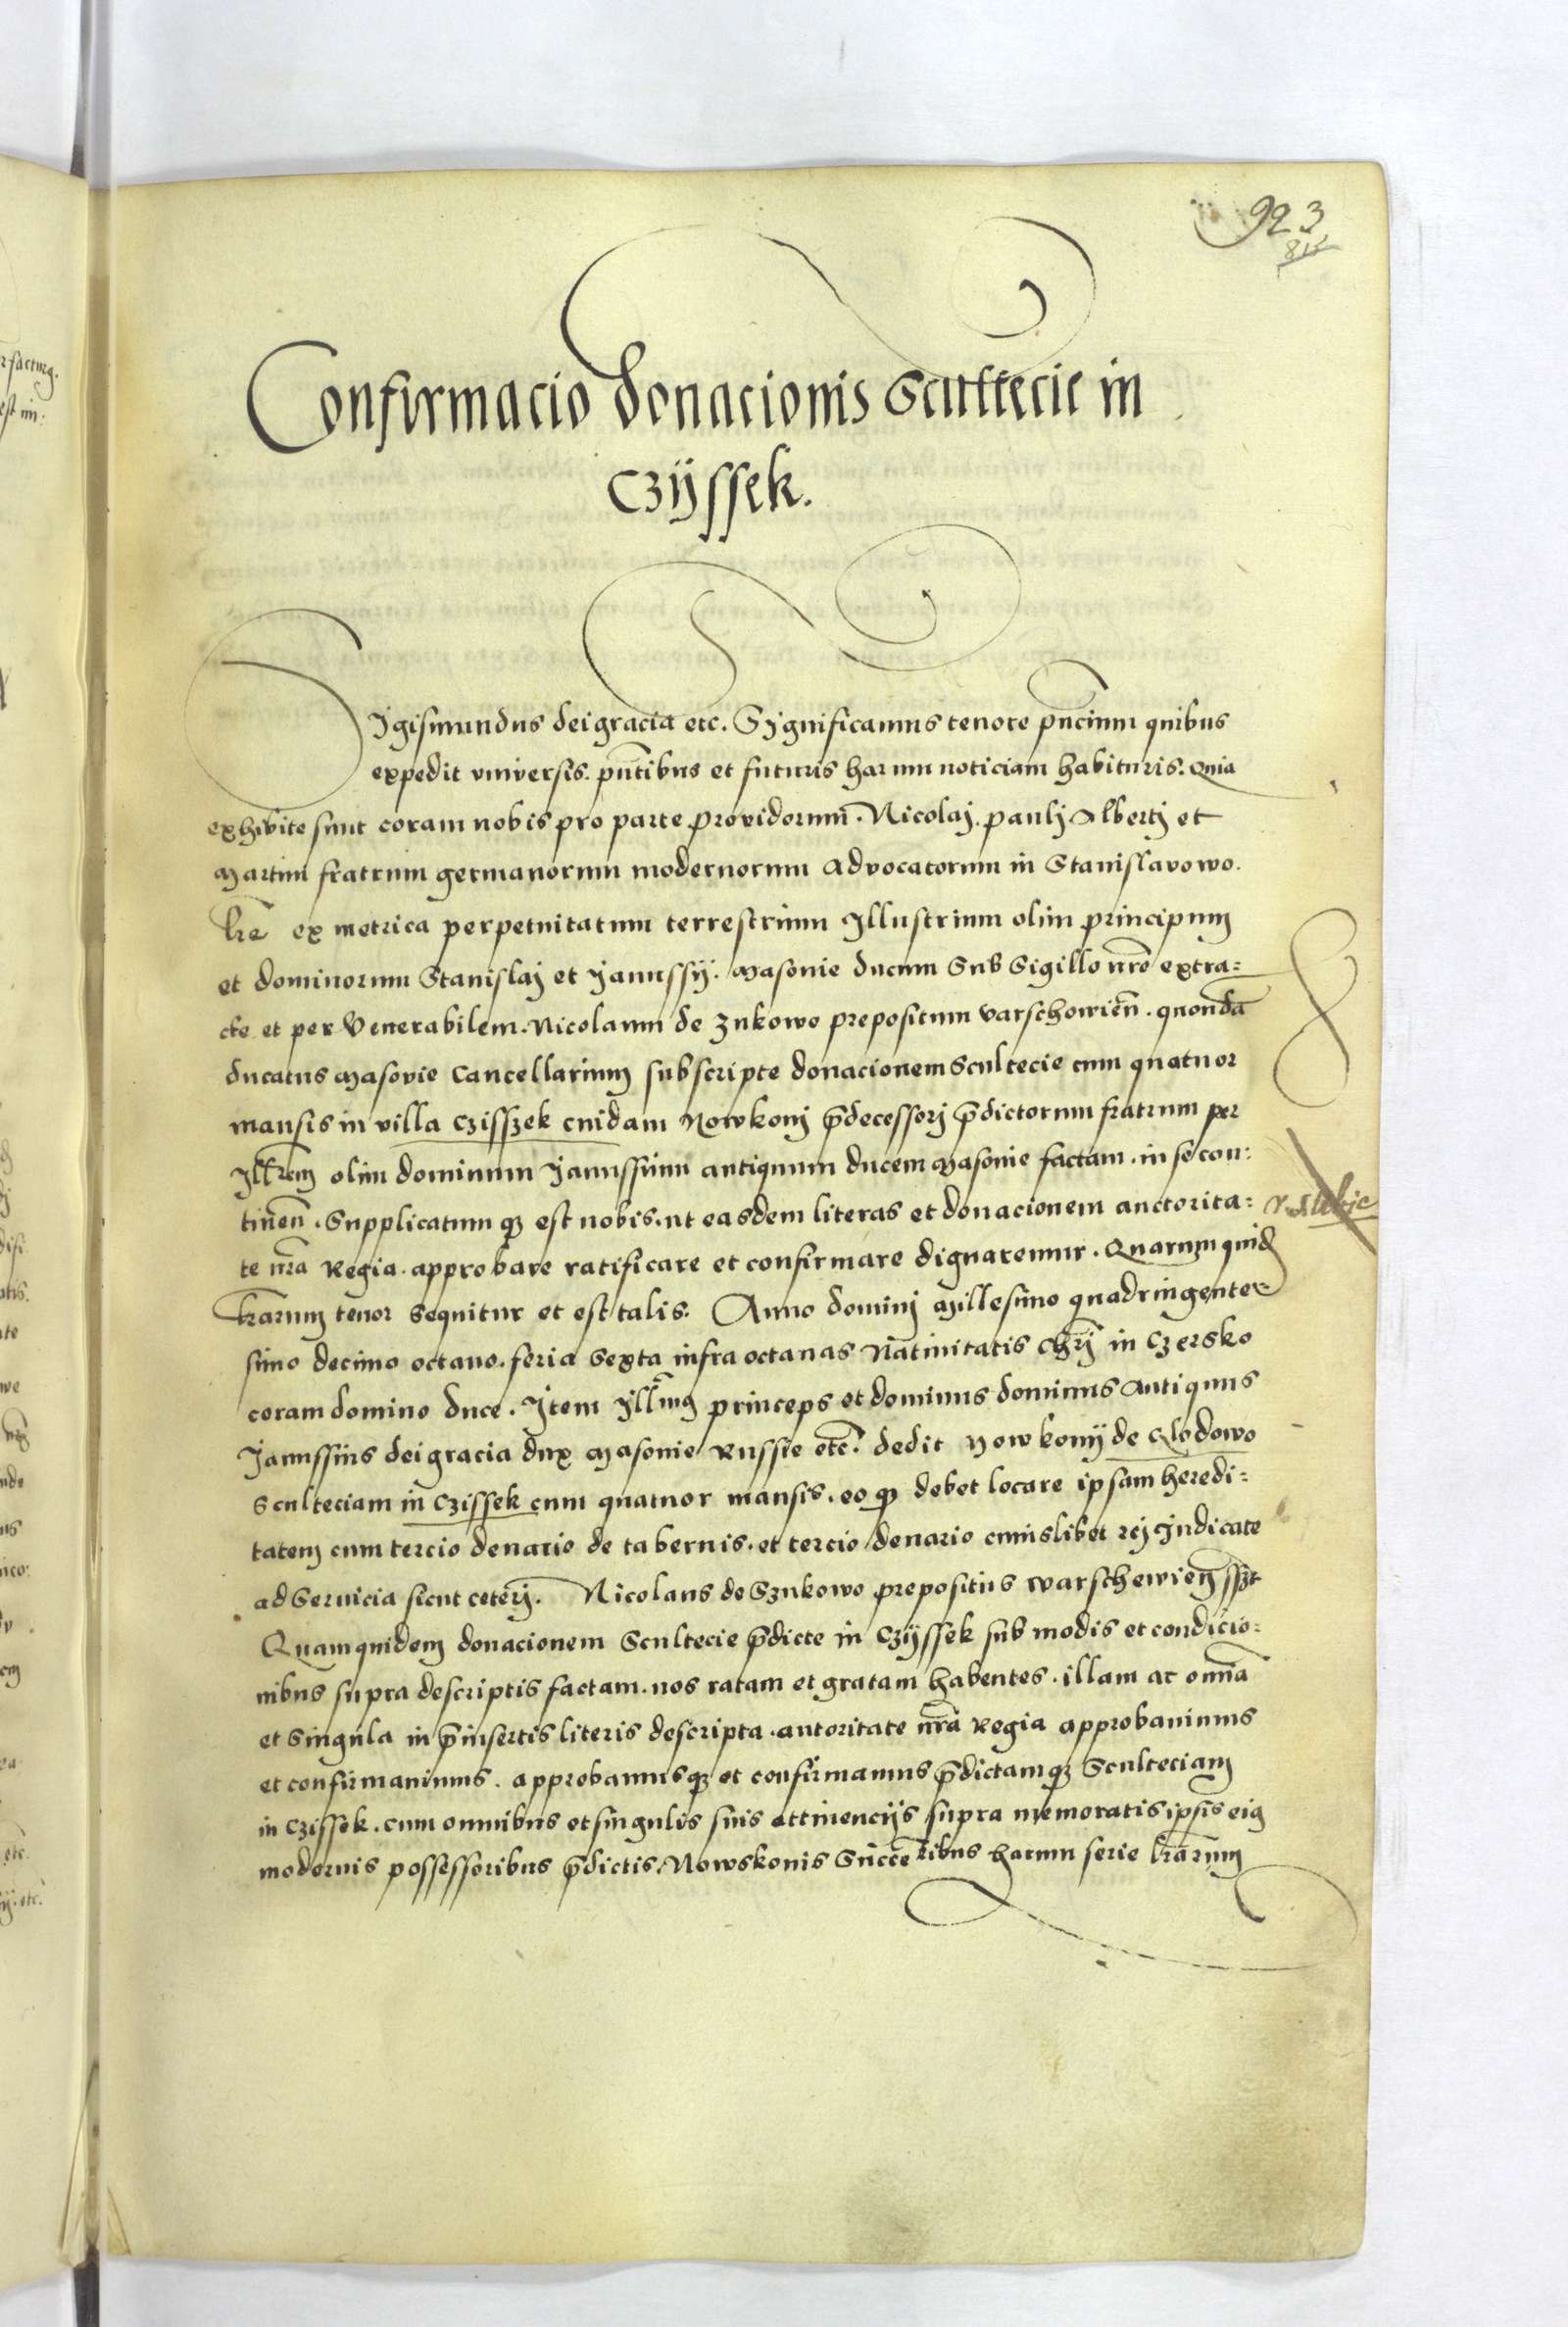 923
815
Confirmacio donacionis Scultecie in
Czÿssek.
Sigismundus dei gracia etc. Significamus tenore pñcium quibus
expedit universis. pñtibus et futuris harum noticiam habituris. Quia
exhibite sunt coram nobis pro parte providorum. Nicolaj. paulj Albertj et
Martini fratrum germanorum modernorum Advocatorum in Stanislavowo.
lr̃e ex metrica perpetuitatum terrestrium Illustrium olim principum
et dominorum Stanislaj et Janussÿ. Masovie ducum Sub Sigillo nr̃o extra=
cte et per Venerabilem. Nicolaum de Zukowo prepositum varschovieñ. quondã
ducatus Masovie Cancellarium subscripte donacionem scultecie cum quatuor
mansis in villa Czisszek cuidam Nowkonj p̃decessorj p̃dictorum fratrum per
Illr̃em olim dominum Janussium antiquum ducem Masovie factam. in se con=
tineñ. Supplicatum qz est nobis. ut easdem literas et donacionem auctorita=
te nr̃a Regia. approbare ratificare et confirmare dignaremur. Quarum quid̃
lr̃arum tenor sequitur et est talis. Anno dominj Millesimo quadringente=
simo decimo octavo. feria sexta infra octavas Nativitatis Chrj̃ in Czersko
coram domino duce. Item Illm̃us princeps et dominus dominus Antiquus
Janussius dei gracia dux Masovie Russie etc̃. dedit Nowkonÿ de Clodowo
Sculteciam in Czissek cum quatuor mansis. eo qz debet locare ipsam heredi=
tatem cum tercio denario de tabernis. et tercio denario cuiuslibet rej Judicate
ad Servicia sicut ceterj. Nicolaus de Szukowo prepositus warschewieñ sszt
Quamquidem donacionem Scultecie p̃dicte in Czÿssek sub modis et condicio=
nibus supra descriptis factam. nos ratam et gratam habentes. illam ac om̃ia
et Singula in p̃insertis literis descripta. autoritate nr̃a Regia approbavimus
et confirmavimus. approbamusqz et confirmamus p̃dictamqz Sculteciam
in Czissek. cum omnibus et singulis suis attinencÿs supra memoratis ipsis eis
modernis possessoribus p̃dictis. Nowskonis Succeribus harum serie lr̃arum